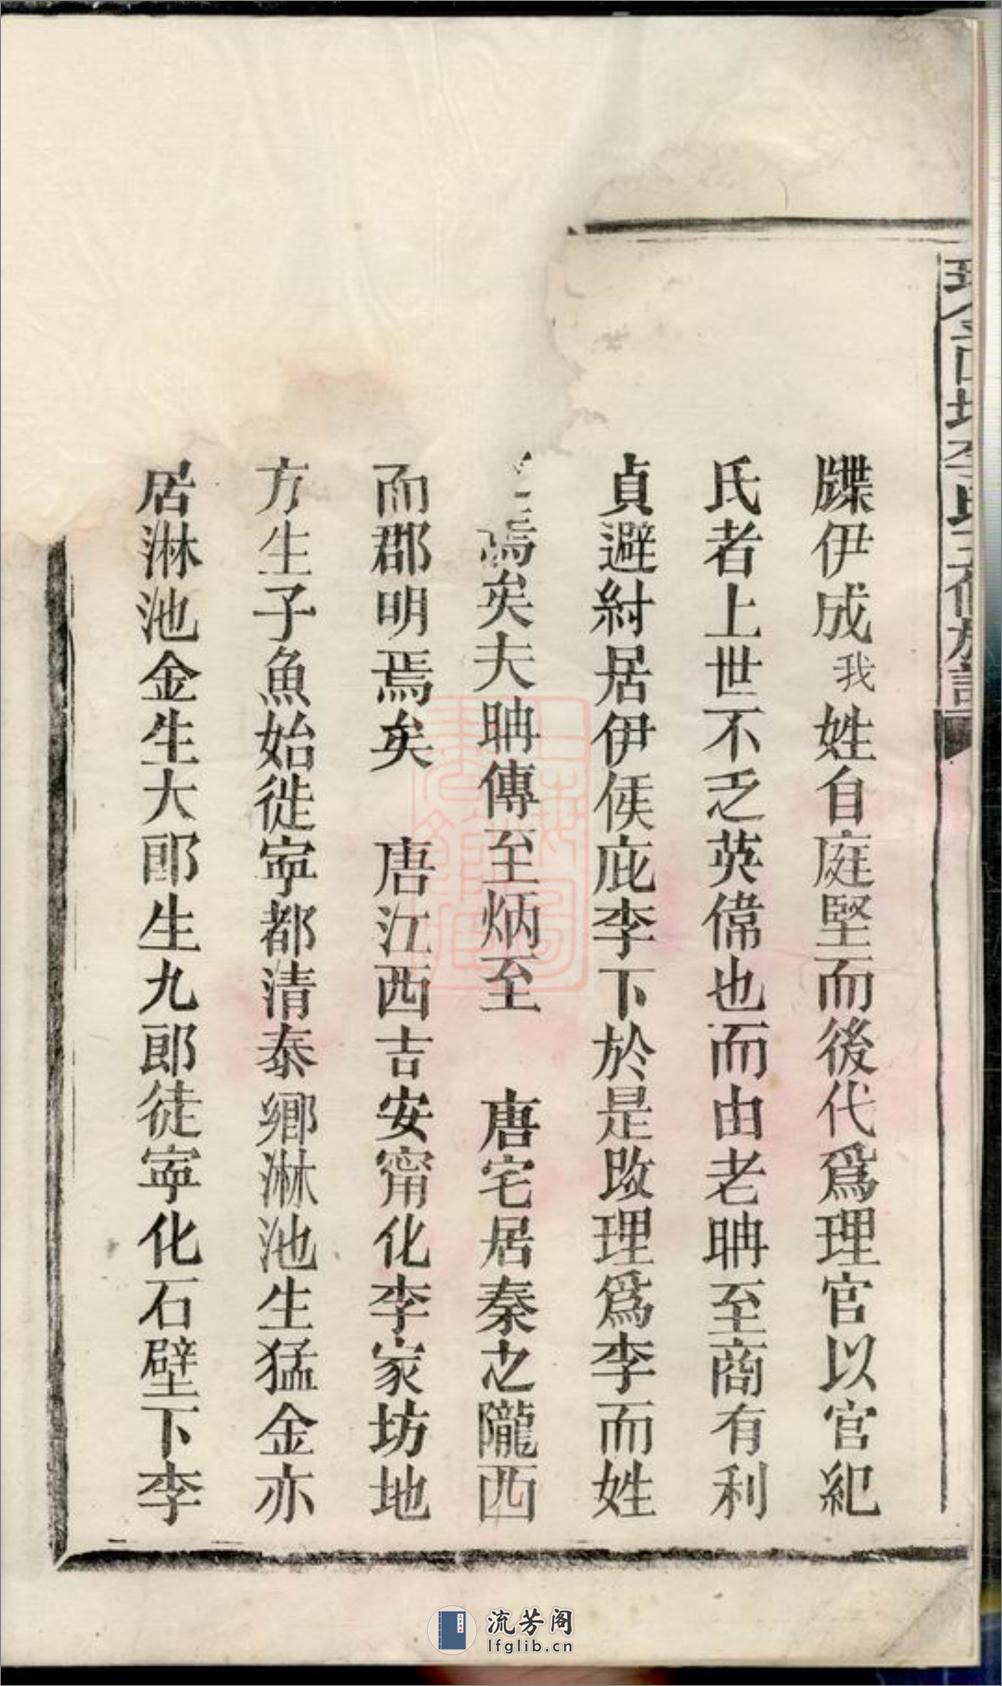 牒伊成我姓自庭堅而後代爲理官以官紀
氏者上世不乏英偉也而由老聃至商有利
貞避紂居伊侯庇李下於是改理爲李而姓
焉矣夫聃傳至炳至　唐宅居秦之隴西
而郡明焉矣　唐江西吉安甯化李家坊地
方生子魚始徙寧都清泰鄉淋池生猛金亦
居淋池金生大郎生九郎徒寧化石壁下李
李氏
流芳阁
lfglib.cn